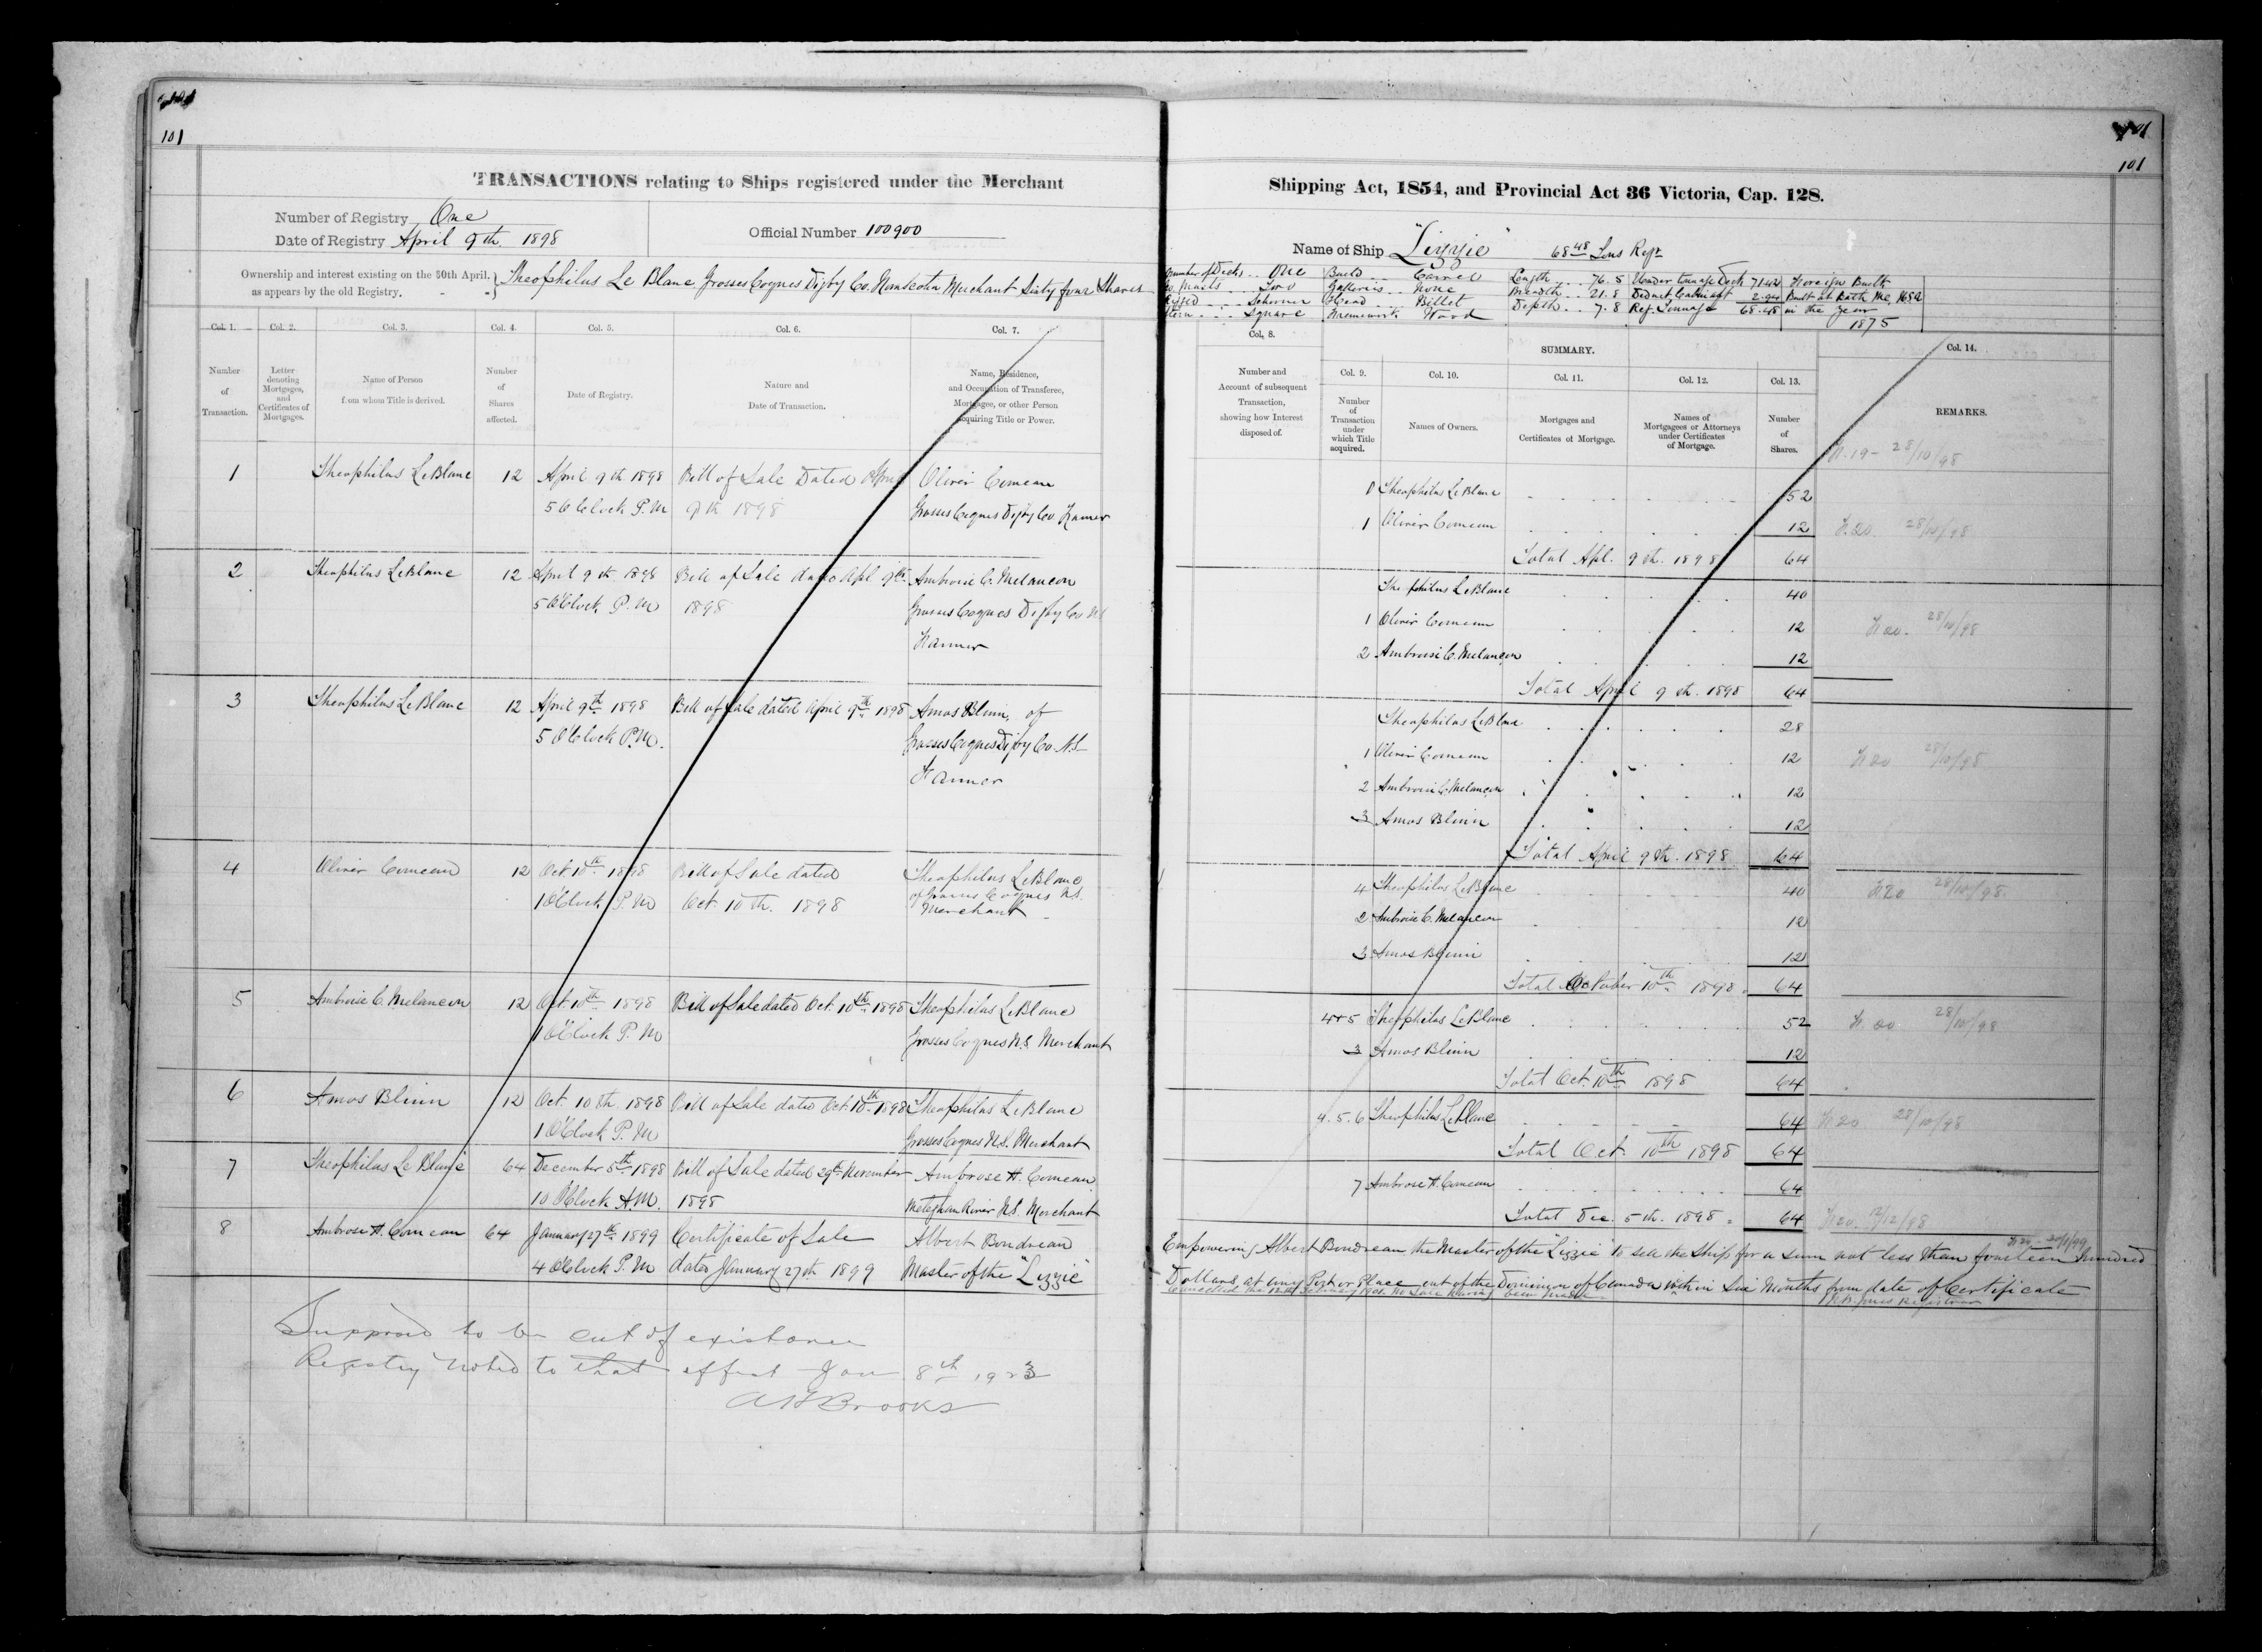 101
101
TRANSACTIONS relating to Ships registered under the Merchant
Number of Registry One
Date of Registry April 9th 1898
Official Number 100900
Ownership and interest existing on the 30th April.
as appears by the old Registry.
Theophilus Le Blanc Grosses Coques Digby Co. Novascotia Merchant Sixty four Shares
Col. 1. Col. 2. Col. 3. Col. 4. Col. 5. Col. 6. Col. 7.
Number of Transaction.
Letter denoting Mortgages, and Certificates of Mortgages.
Name of Person from whom Title is derived.
Number of Shares affected.
Date of Registry.
Nature and Date of Transaction.
Name, Residence, and Occupation of Transferee, Mortgagee, or other Person acquiring Title or Power.
1 Theophilus LeBlanc 12 April 9th 1898 Bill of Sale Dated April Oliver Comeau
5 O Clock P.M 9th 1898 Grosses Coques Digby Co. Farmer
2 Theophilus LeBlanc 12 April 9th 1898 Bill of Sale dated Apl 9th Ambroise C. Melancon
5 O'Clock P.M 1898 Grosses Coques Digby Co NS
Farmer
3 Theophilus LeBlanc 12 April 9th 1898 Bill of Sale dated April 9th 1898 Amos Blinn, of
5 O'Clock P.M. Grosses Coques Digby Co. N.S
Farmer
4 Oliver Comeau 12 Oct 10th 1898 Bill of Sale dated Theophilus LeBlanc
of Grosses Coques N.S.
1 O'Clock P.M Oct. 10th. 1898 Merchant
5 Ambroise C. Melancon 12 Oct. 10th 1898 Bill of Sale dated Oct. 10th 1898 Theophilus LeBlanc
1 O'Clock P.M Grosses Coques N.S. Merchant
6 Amos Blinn 12 Oct. 10th 1898 Bill of Sale dated Oct. 10th 1898 Theophilus LeBlanc
1 O'Clock P.M Grosses Coques N.S. Merchant
7 Theophilus Le Blanc 64 December 5th 1898 Bill of Sale dated 29th November Ambrose H. Comeau
10 O'Clock A.M. 1898 Meteghan River N.S. Merchant
8 Ambrose H. Comeau 64 January 27th 1899 Certificate of Sale Albert Boudreau
4 O'Clock P.M dated January 27th 1899 Master of the "Lizzie"
Supposed to be out of existance
Registry noted to that effect Jan 8th 1923
A H Brooks
101
101
Shipping Act, 1854, and Provincial Act 36 Victoria, Cap. 128.
Name of Ship "Lizzie" 68 48 Tons Regr
Number of Decks .. One Build ... Carvel Length ... 76.5 Under tonnage Deck 71.42 Foreign Built
No. Masts ... Two Galleries .. None Breadth .. 21.8 Deduct 2.94 Built at Bath Me, USA
Rigged ... Schooner Head .. Billet Depth ... 7.8 Reg. Tonnage 68.48 in the year
Stern ... Square Framework. Wood 1875
Col. 8. SUMMARY. Col. 14.
Col. 9. Col. 10. Col. 11. Col. 12. Col. 13.
Number and Account of subsequent Transaction, showing how Interest disposed of.
Number of Transaction under which Title acquired.
Names of Owners.
Mortgages and Certificates of Mortgage.
Names of Mortgagees or Attorneys under Certificates of Mortgage.
Number of Shares.
REMARKS.
28/10/98
0 Theophilus LeBlanc 52
1 Oliver Comeau 12 28/10/98
Total Apl. 9th. 1898 64
Theophilus LeBlanc 40
1 Oliver Comeau 12 28/10/98
2 Ambroise C. Melancon 12
Total April 9th. 1898 64
Theophilus LeBlanc 28
1 Oliver Comeau 12 28/10/98
2 Ambroise C. Melancon 12
3 Amos Blinn 12
Total April 9th. 1898 64
4 Theophilus LeBlanc 40 28/10/98
2 Ambroise C. Melancon 12
3 Amos Blinn 12
Total October 10th 1898 64
4+5 Theophilus LeBlanc 52 28/10/98
3 Amos Blinn 12
Total Oct. 10th 1898 64
4. 5. 6 Theophilus LeBlanc 64 28/10/98
Total Oct. 10th 1898 64
7 Ambrose H. Comeau 64
Total Dec. 5th. 1898 64
Empowering Albert Boudreau the Master of the "Lizzie" to sell the Ship for a sum not less than fourteen hundred
Dollars at any Port or Place out of the Dominion of Canada within Six Months from date of Certificate